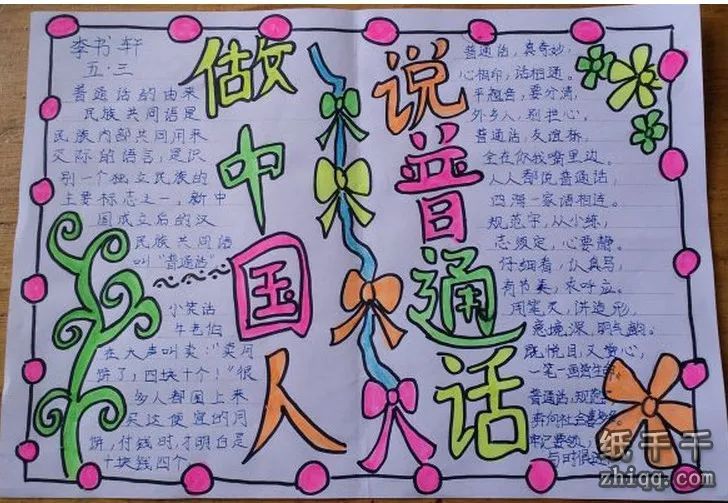 李书轩
五·三
普通话的由来
民族共同语是
民族内部共同用来
交际的语言,是识
别一个独立民族的
主要标志之一,新中
国成立后的汉
民族共同语
叫"普通话"
小笑话
牛老伯
在大声叫卖:"卖月
饼了,四块十个!"很
多人都围上来
买这便宜的月
饼,付钱时,才明白是
十块钱四个。
做中国人
说普通话
普通话,真奇妙,
心相印,话相通。
平翘音,要分清,
外乡人,别担心,
普通话,友谊桥,
全在你我嘴里边。
人人都说普通话,
四海一家语相连。
规范字,从小练,
志须定,心要静。
仔细看,认真写,
有节奏,求呼应。
用笔灵,讲造形,
意境深,
既悦目,又赏心,
一笔一画
普通话,规范
牢记要领,
与时俱进
纸千千
zhiqq.com